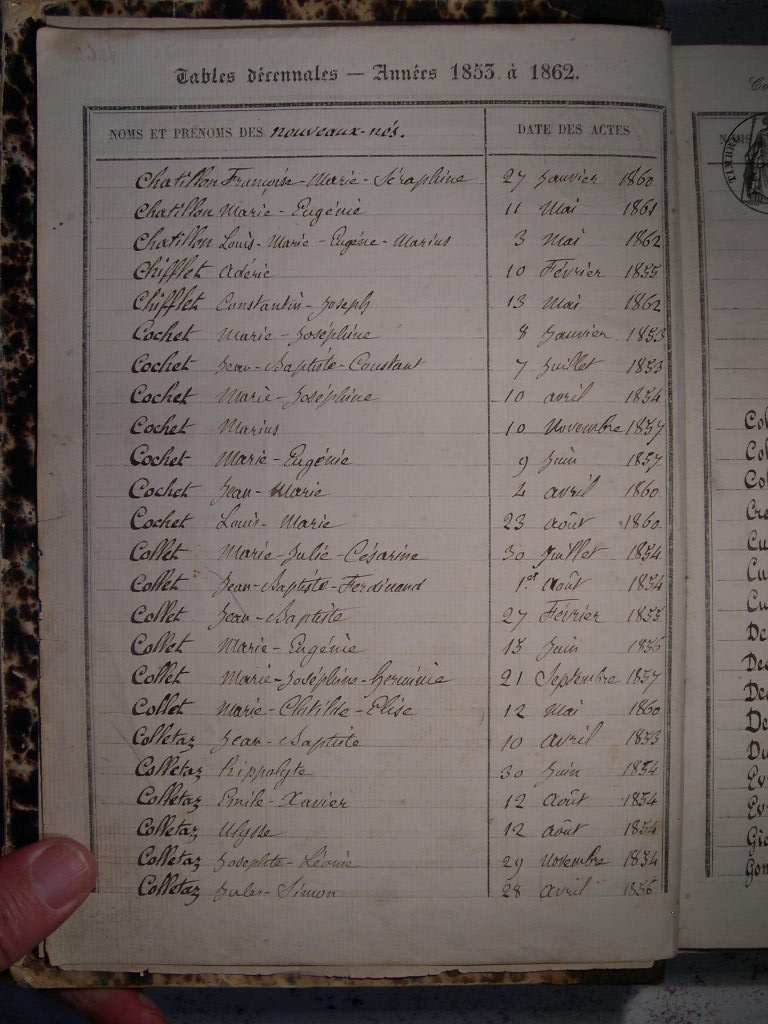 Tables décennales — Années 1853 à 1862.
NOMS ET PRÉNOMS DES nouveaux-nés. DATE DES ACTES
Chatillon Françoise-Marie-Séraphine 27 Janvier 1860
Chatillon Marie-Eugénie 11 Mai 1861
Chatillon Louis-Marie-Eugène-Marius 3 Mai 1862
Chifflet Adéric 10 Février 1855
Chifflet Constantin-Joseph 13 Mai 1862
Cochet Marie-Joséphine 8 Janvier 1853
Cochet Jean-Baptiste-Constant 7 Juillet 1853
Cochet Marie-Joséphine 10 avril 1854
Cochet Marius 10 Novembre 1857
Cochet Marie-Eugénie 9 Juin 1857
Cochet Jean-Marie 4 avril 1860
Cochet Louis-Marie 23 août 1860
Collet Marie-Julie-Césarine 30 Juillet 1854
Collet Jean-Baptiste-Ferdinand 1er Août 1854
Collet Jean-Baptiste 27 Février 1855
Collet Marie-Eugénie 15 Juin 1856
Collet Marie-Joséphine-Herminie 21 Septembre 1857
Collet Marie-Clotilde-Elise 12 Mai 1860
Colletaz Jean-Baptiste 10 avril 1853
Colletaz Hippolyte 30 Juin 1854
Colletaz Emile-Xavier 12 Août 1854
Colletaz Ulysse 12 août 1854
Colletaz Josephte-Léonie 29 Novembre 1854
Colletaz Jules-Simon 28 avril 1856
TIMBRE
Col
Col
Col
Cre
Cu
Cu
Cu
De
Dec
De
De
Du
Ev
Ev
Gia
Gon